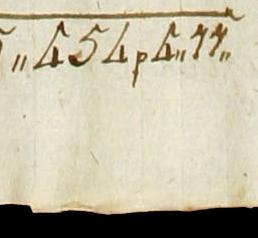 „ 454 p 4„ 77„